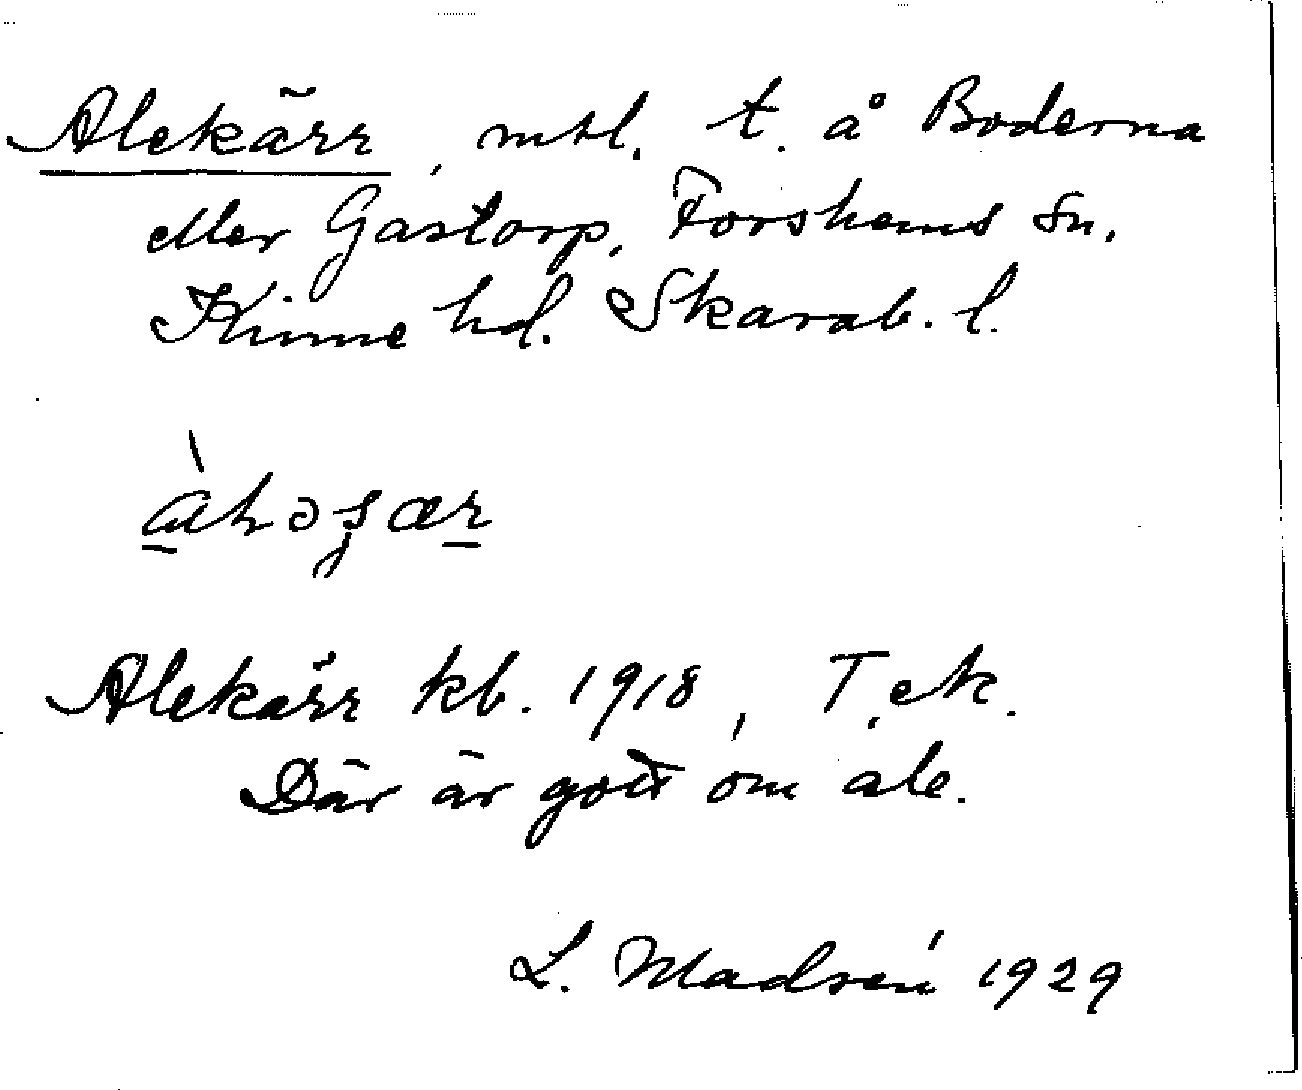 Alekärr, mtl. t. å Boderna
eller Gastorp, Forshems sn.
Kinne hd. Skarab. l.
Alekärr kb. 1918, T. ek.
Där är gott om ale.
L. Madsén 1929